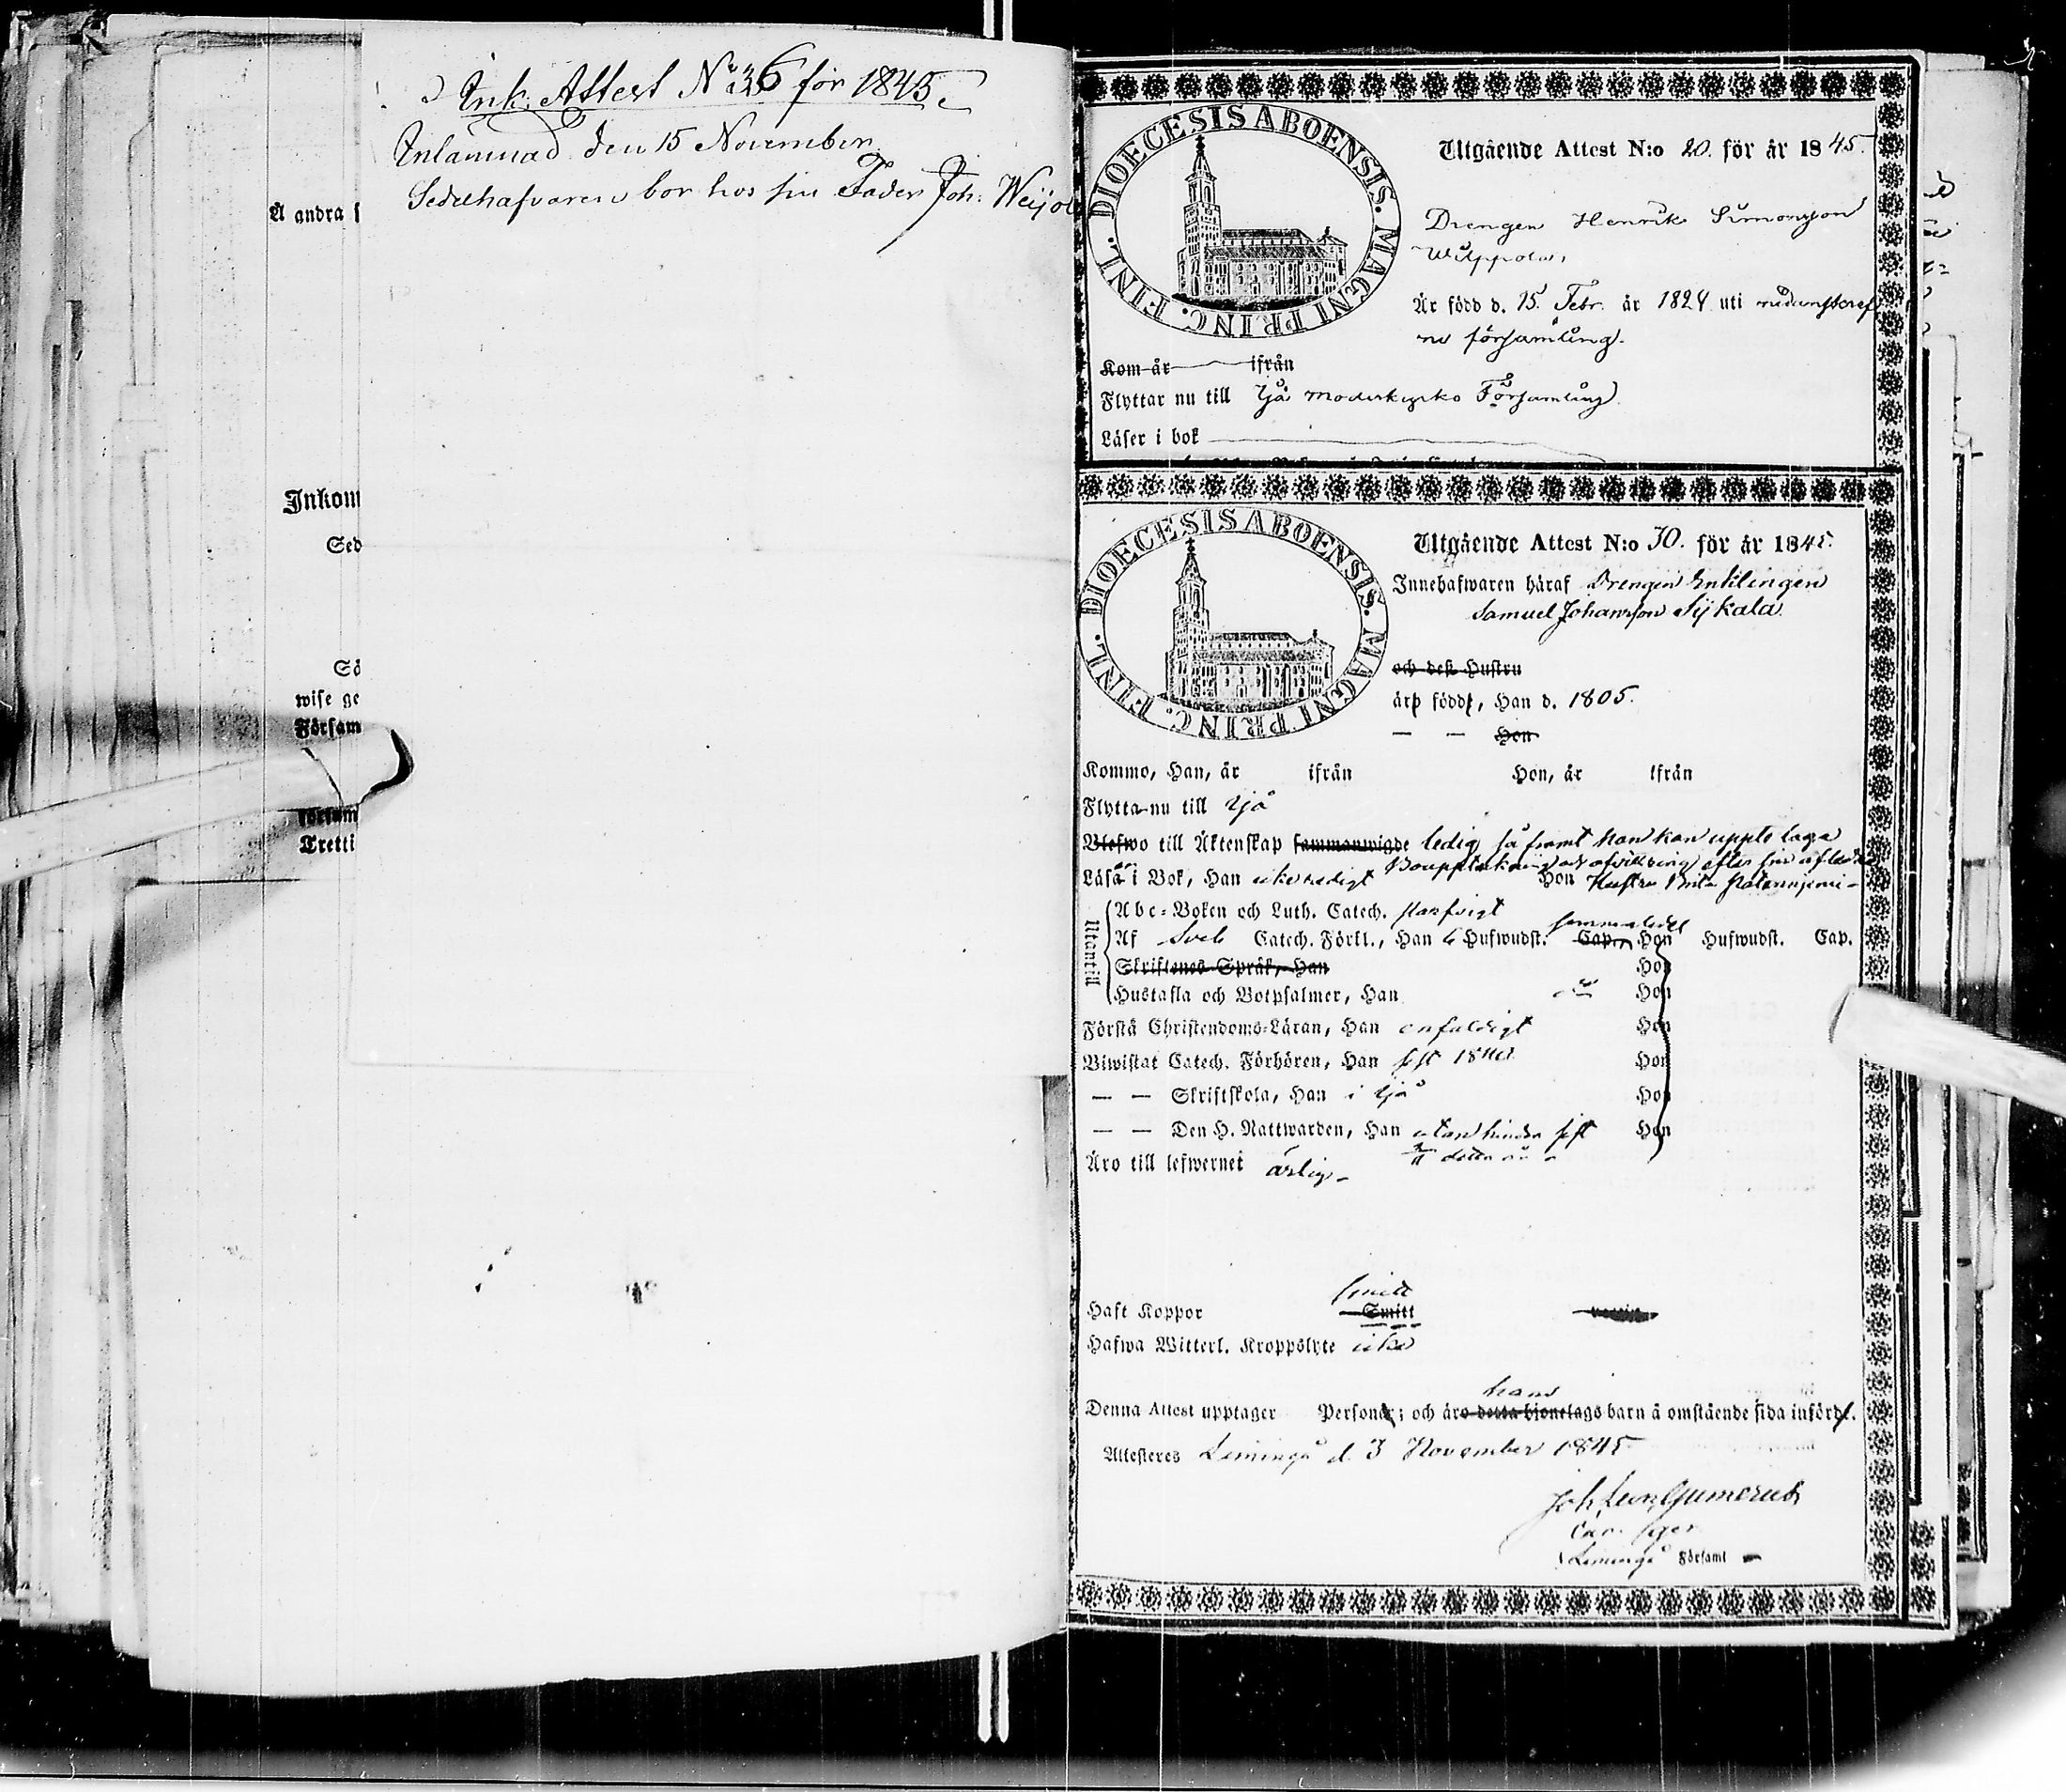 Ink. Attest No 36 för 1845.
Inlämnad den 15 November.
Sedelhafvaren bor hos sin Fader Joh: Weijol
Å andra s
Inkom
Sed
Sö
wise ge
Försam
försam
Tretti
DIOECESIS ABOENSIS. MAGNI PRINC. FINL.
Utgående Attest N:o 20. för år 1845.
Drengen Henrik Simonsson
är född d. 15. Febr. år 1824 uti nedanskref
ne församling.
Kom år ifrån
Flyttar nu till Ijå moderkyrko Församling
Läser i bok
DIOECESIS ABOENSIS. MAGNI PRINC. FINL.
Utgående Attest N:o 30. för år 1845.
Innehafwaren häraf Drengen Enklingen
Samuel Johansson Sijkala
och dess Hustru
äro född, Han d. 1805.
— — Hon
Kommo, Han, år ifrån Hon, år ifrån
Flytta nu till Ijå
Blefwo till Äktenskap sammanwigde ledig så framt han kan uppte laga
Bouppteckning och afvittring efter sin aflidna
Läsa i Bok, Han Hon Hustru Brita
Utantill
Abc-Boken och Luth. Catech. 
Af Sveb Catech. Förkl., Han 6 Hufwudst. Cap., Hon Hufwudst. Cap.
Skriftenes Språk, Han Hon
Hustafla och Botpsalmer, Han Hon
Förstå Christendoms-Läran, Han enfaldigt Hon
Biwistat Catech. Förhören, Han sist Hon
— — Skriftskola, Han i Ijå Hon
— — Den H. Nattwarden, Han utan hinder sist Hon
detta år
Äro till lefwernet ärlig
Haft Koppor Smitt
Hafwa Witterl. Kroppslyte icke
hans
Denna Attest upptager Person; och äro detta hjonelags barn å omstående sida införd.
Attesteres Limingo d. 3 November 1845
Joh Leon. Gumerus
Limingo Församl